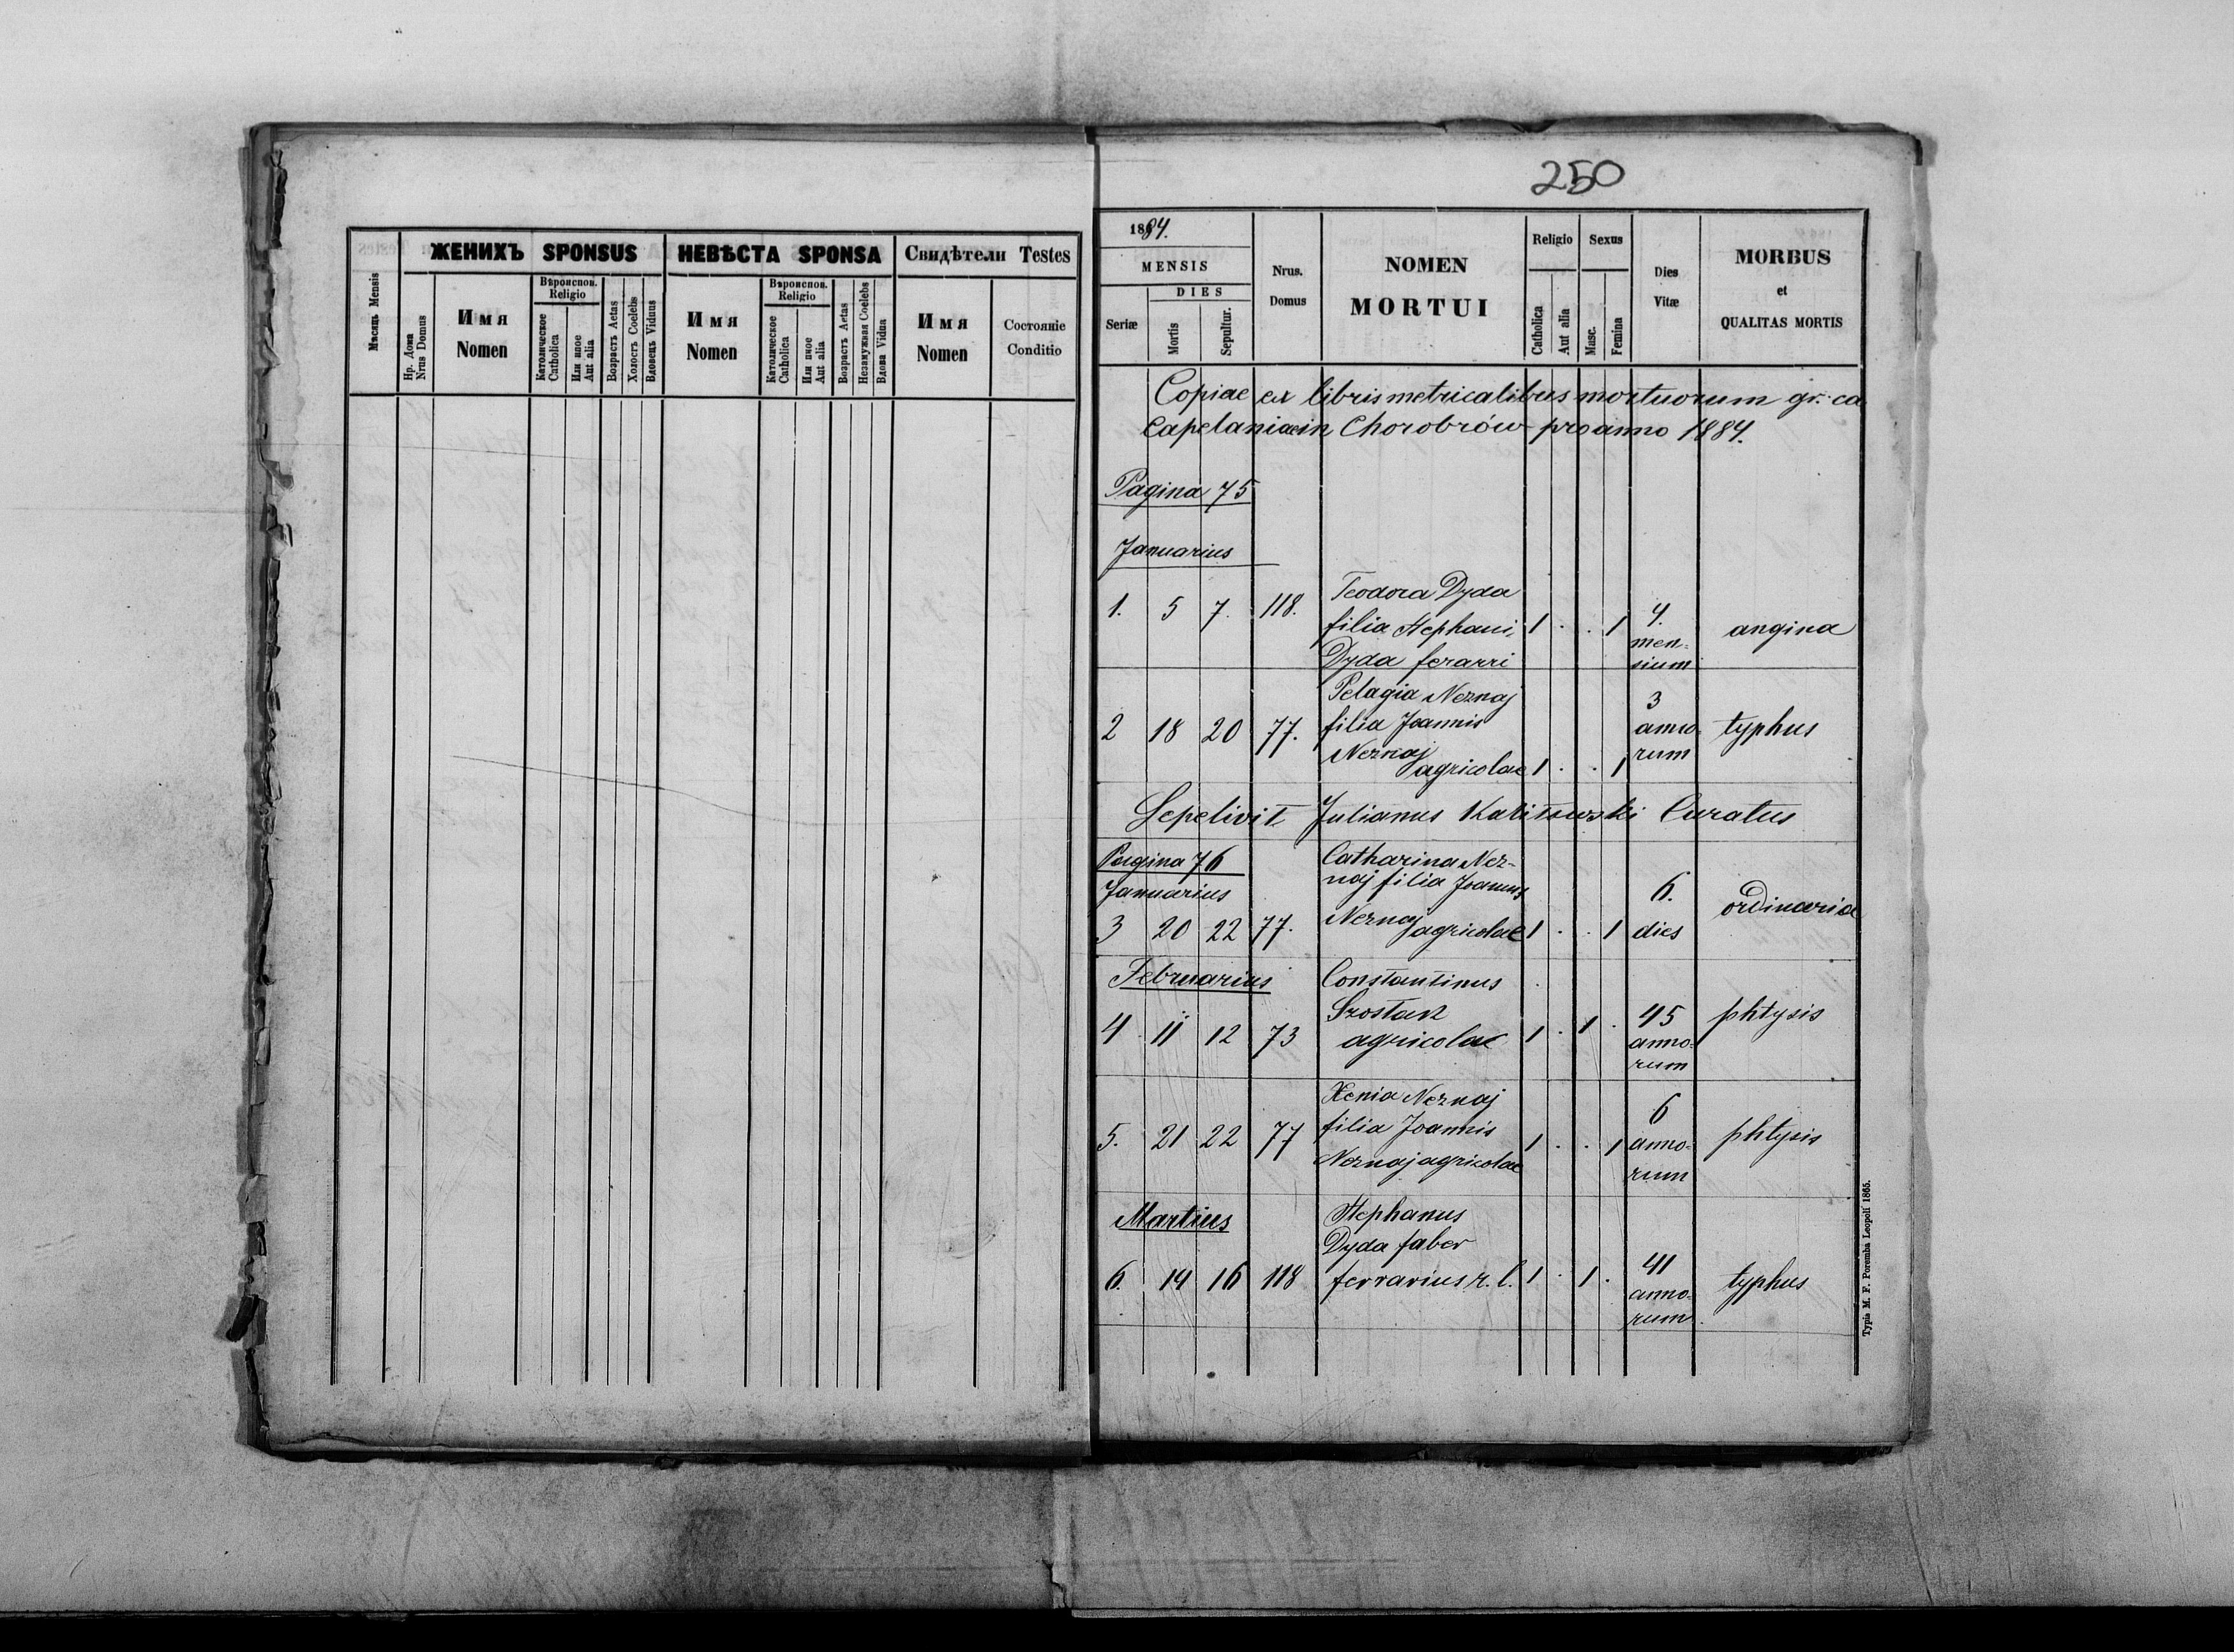 250
ЖЕНИХЪ SPONSUS
НЕВѢСТА SPONSA
Свидѣтели Testes
Мѣсяць Mensis
Нр. Дома
Nrus Domus
Имя
Nomen
Вѣроиспов.
Religio
Католическое
Catholica
Или иное
Aut alia
Возрастъ Aetas
Холостъ Coelebs
Вдовець Viduus
Имя
Nomen
Вѣроиспов.
Religio
Католическое
Catholica
Или иное
Aut alia
Возрастъ Aetas
Незамужная Coelebs
Вдова Vidua
Имя
Nomen
Состояніе
Conditio
1884.
MENSIS
DIES
Seriæ
Mortis
Sepultur.
Nrus.
Domus
NOMEN
MORTUI
Religio
Catholica
Aut alia
Sexus
Masc.
Femina
Dies
Vitæ
MORBUS
et
QUALITAS MORTIS
Copiae ex libris metricalibus mortuorum gr. ca
Capelaniae in Chorobrów pro anno 1884.
Pagina 75
Januarius
Teodora Dyda
1. 5 7. 118. filia Stephani 1 . . 1 4. angina
men-
Dyda ferarri sium
Pelagia Neznaj
3
2 18 20 77. filia Joannis anno- typhus
Neznaj rum
agricolae 1 . . 1
Sepelivit Julianus Curatus
Pagina 76 Catharina Nez-
Januarius naj filia Joannis 6. ordinaria
3 20 22 77. Neznaj agricolae 1 . . 1 dies
Februarius Constantinus
Szostak 45 phtysis
4 11 12 73 agricolae 1 . 1 . anno-
rum
Xenia Neznaj 6
5. 21 22 77 filia Joannis 1 . . 1 anno- phtysis
Neznaj agricolae rum
Martius Stephanus
Dyda faber
41
6. 14 16 118 ferrarius r. l. 1 . 1 . anno- typhus
rum
Typis M. F. Poremba Leopoli 1865.